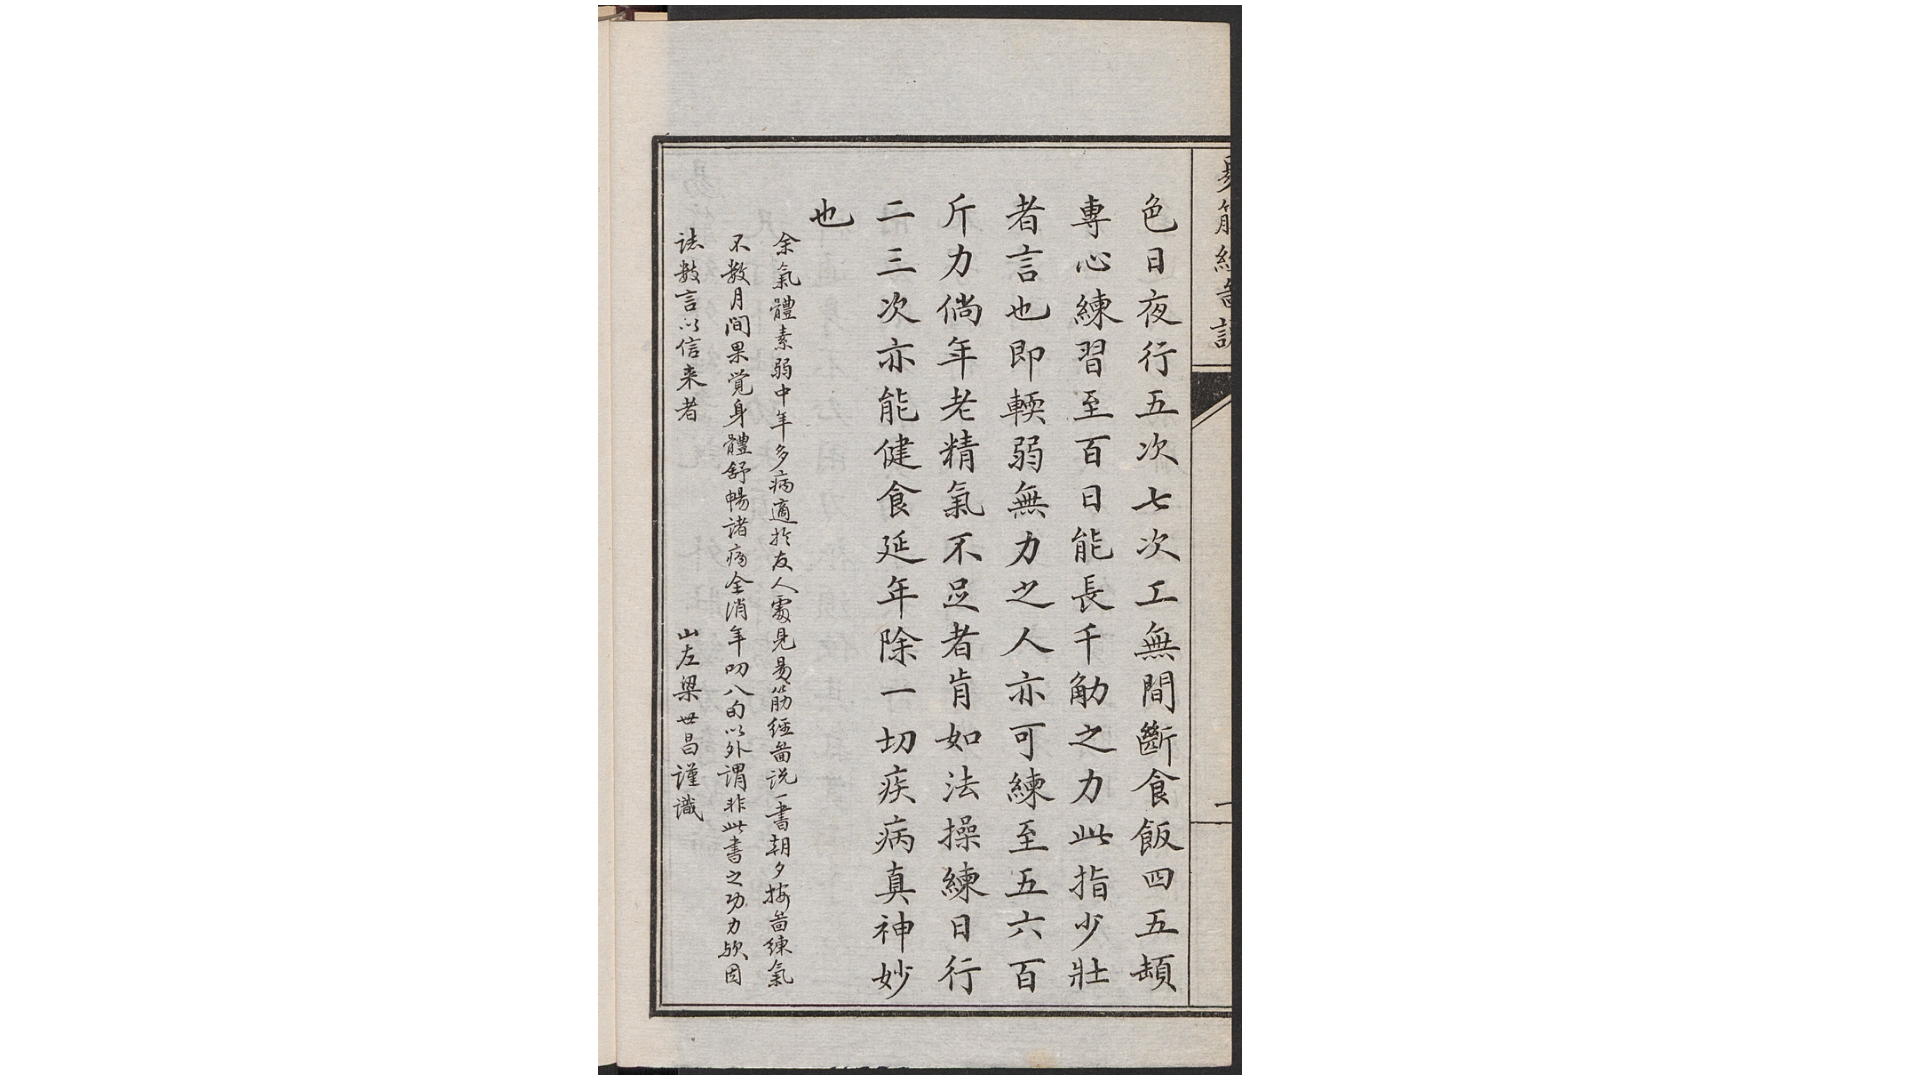 易筋經啚說
一
色日夜行五次七次工無間斷食飯四五頓
專心練習至百日能長千觔之力此指少壯
者言也即輭弱無力之人亦可練至五六百
斤力倘年老精氣不足者肯如法操練日行
二三次亦能健食延年除一切疾病真神妙
也
余氣體素弱中年多病適於友人處見易筋經啚説一書朝夕按啚練氣
不數月間果覺身體舒暢諸病全消年叨八旬以外謂非此書之功力歟因
誌數言以信来者
山左梁世昌謹識